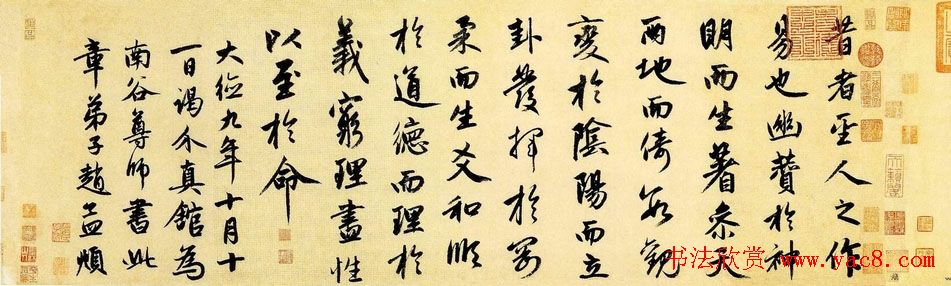 昔者聖人之作
易也幽贊於神
明而生蓍參天
兩地而倚數觀
變於陰陽而立
卦發揮於剛
柔而生爻和順
於道德而理於
義窮理盡性
以至於命
大德九年十月十
一日謁介真館為
南谷尊師書此
章弟子趙孟頫
书法欣赏
www.yac8.com